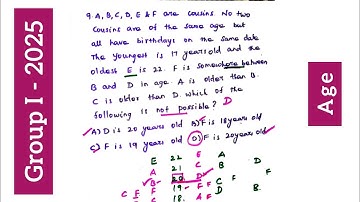 Group I - 2025
9. A, B, C, D, E & F are cousins No two
cousins are of the same age but
all have birthdays on the same date
The youngest is 17 years old and the
oldest E is 22. F is somewhere between
B and D in age. A is older than B.
C is older than D. which of the
following is not possible? D
A) D is 20 years old B) F is 18 years old
C) F is 19 years old D) F is 20 years old
E 22 E A
A 21 C B D
B 20 D F
C F F 19 F F C F
C 18 A F D B
Age